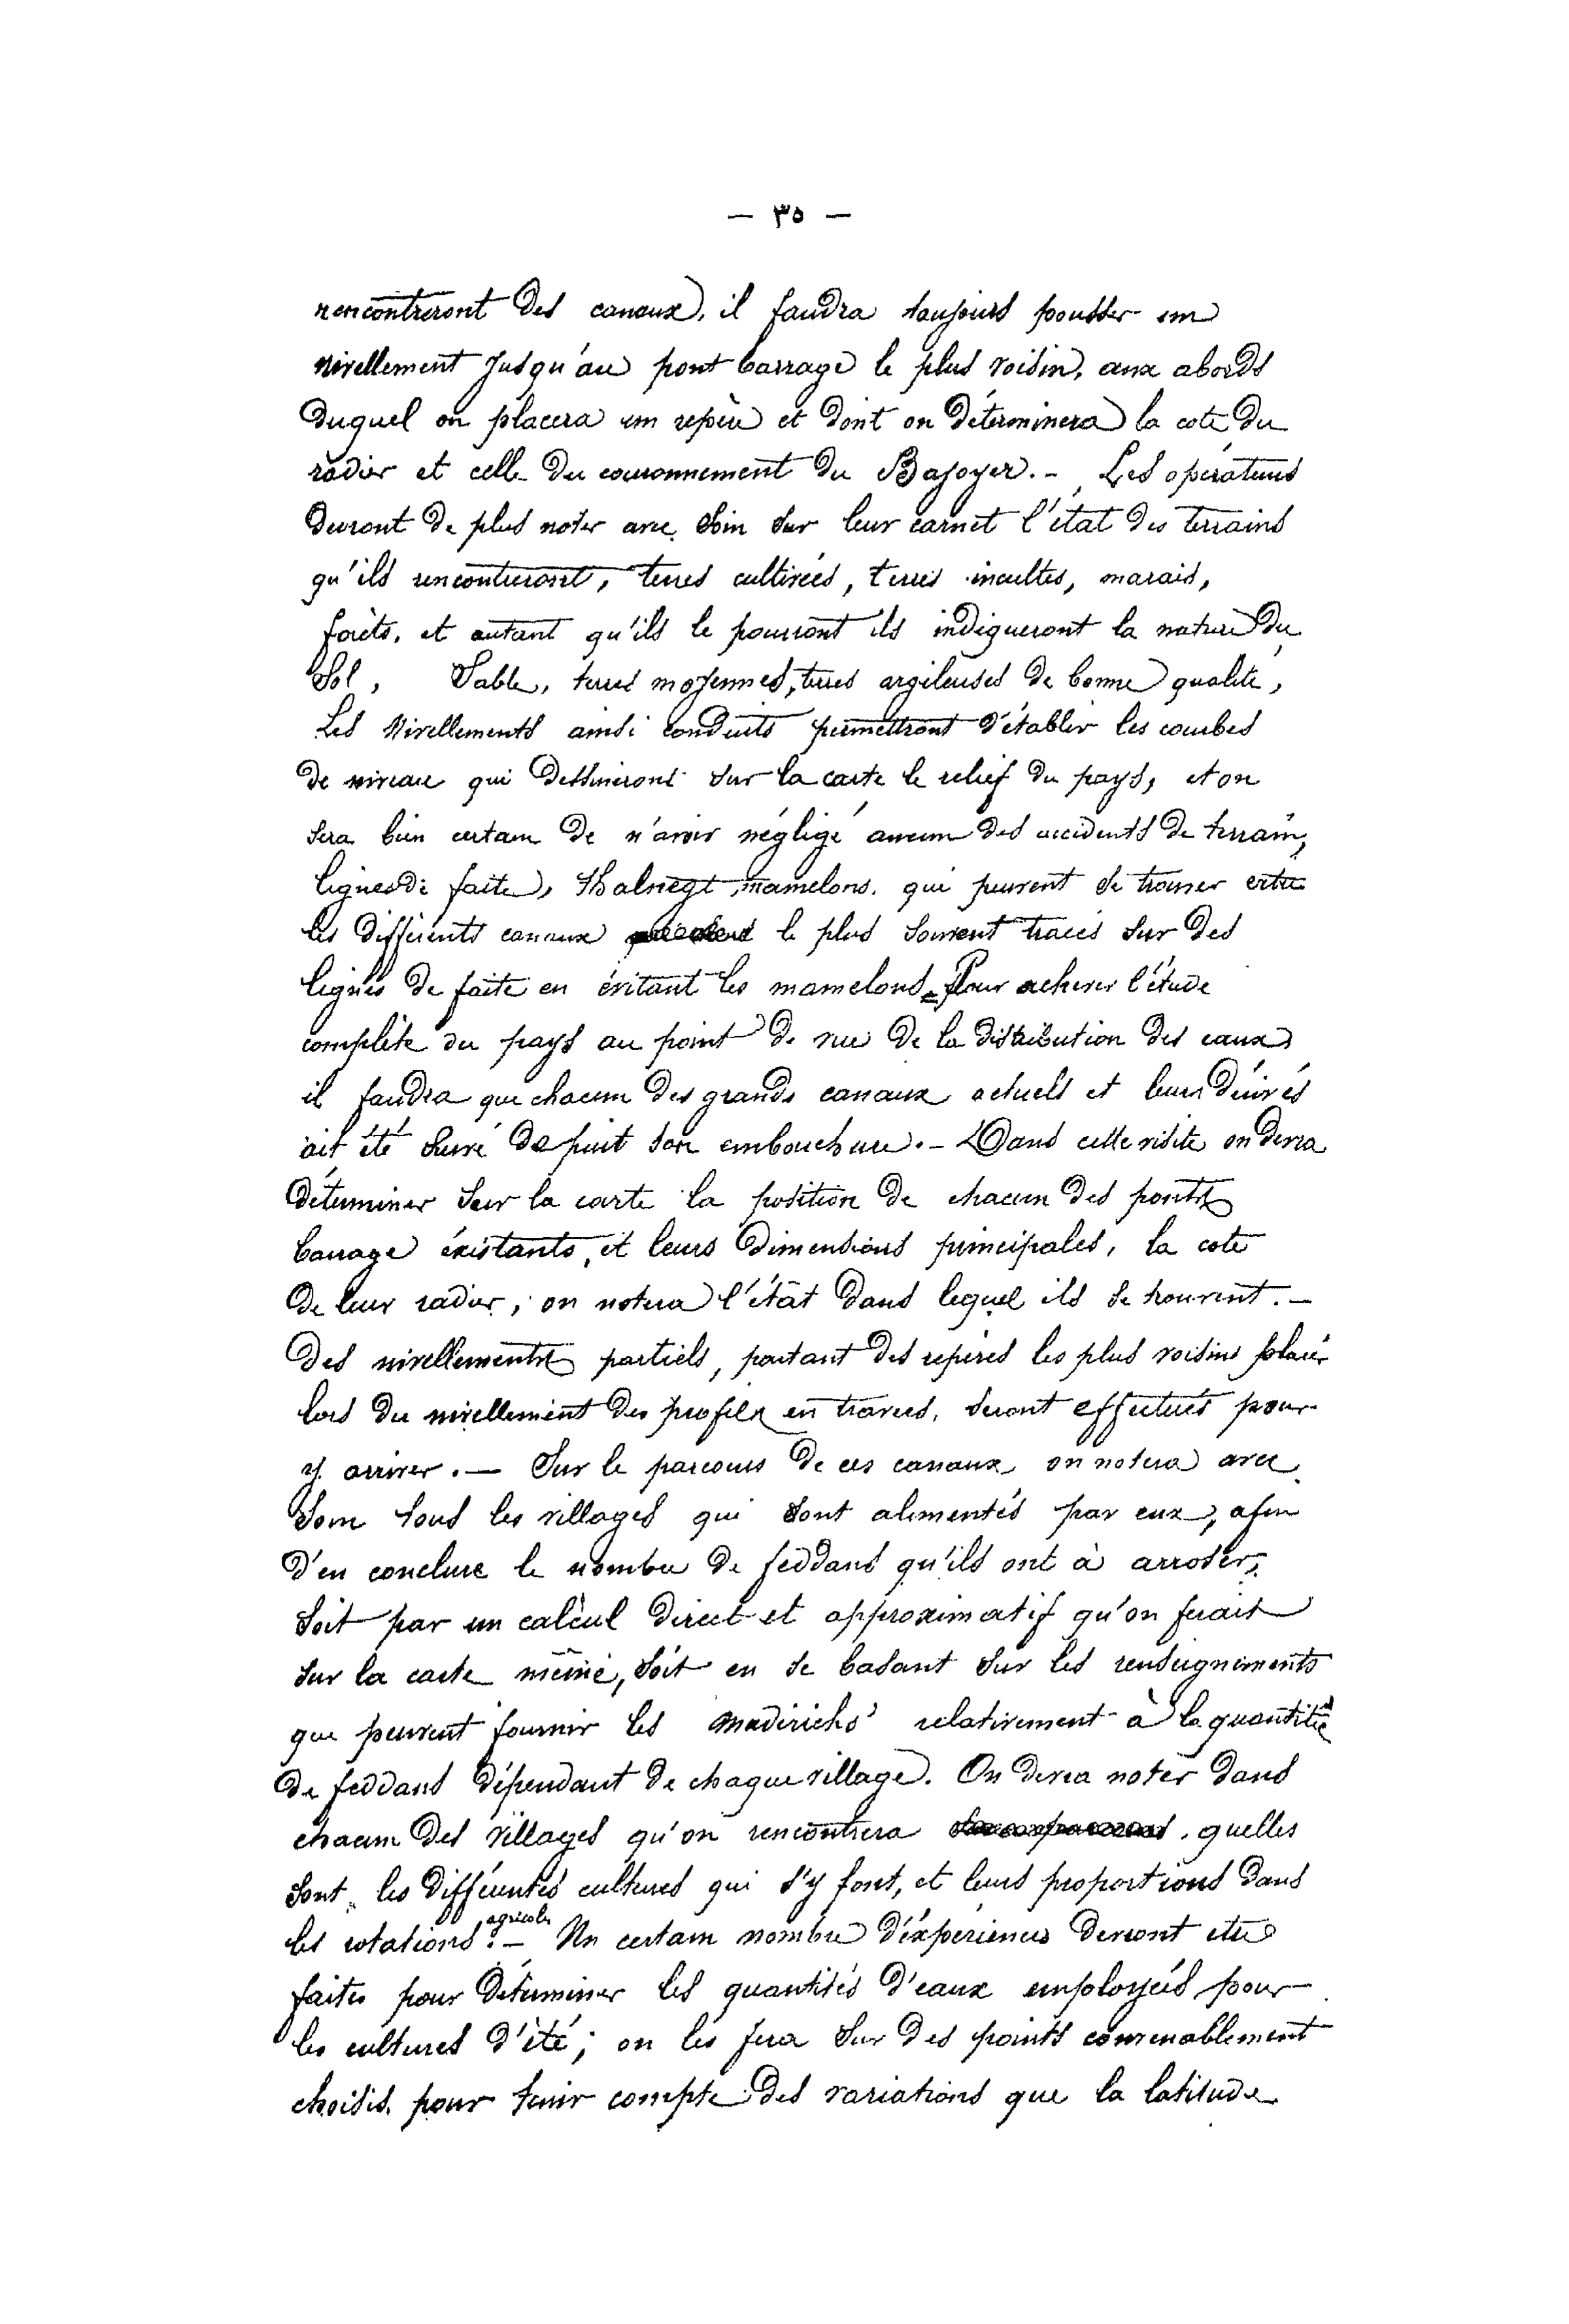 — ٣٥ —
rencontreront des canaux, il faudra toujours pousser un
nivellement jusqu'au pont barrage le plus voisin, aux abords
duquel on placera un repère et dont on déterminera la cote du
radier et celle du couronnement du Bajoyer. – Les opérateurs
devront de plus noter avec soin sur leur carnet l'état des terrains
qu'ils rencontreront, terres cultivées, terres incultes, marais,
forèts, et autant qu'ils le pourront ils indiqueront la nature du
sol, Sable, terres moyennes, terres argileuses de bonne qualité,
Les Nivellements ainsi conduits permettront d'établir les courbes
de niveau qui dessineront sur la carte le relief du pays, et on
sera bien certain de n'avoir négligé aucun des accidents de terrain,
lignes de faite, thalwegt, mamelons, qui peuvent se trouver entre
les différents canaux le plus souvent tracés sur des
lignes de faite en évitant les mamelons. – Pour achever l'étude
complète du pays au point de vue de la distribution des eaux
il faudra que chacun des grands canaux actuels et leurs dérivés
ait été suivé depuit son embouchure. – Dans cette visite on devra
déterminer sur la carte la position de chacun des ponts
barrage éxistants, et leurs dimensions principales, la cote
de leur radier ; on notera l'état dans lequel ils se trouvent. –
Des nivellements partiels, partant des repères les plus voisins placés
lors du nivellement des profils en travers, seront effectués pour
y arriver. — Sur le parcours de ces canaux on notera avec
soin tous les villages qui sont alimentés par eux, afin
d'en conclure le nombre de feddans qu'ils ont à arroser,
soit par un calcul direct et approximatif qu'on ferait
sur la carte même, soit en se basant sur les renseignements
que peuvent fournir les Madirichs relativement à la quantité
de feddans dépendant de chaque village. On devra noter dans
chacun des villages qu'on rencontrera, quelles
sont les différentes cultures qui s'y font, et leurs proportions dans
les rotations agricoles. – Un certain nombre d'éxpériences devront etre
faites pour déterminer les quantités d'eaux employeés pour
les cultures d'été ; on les fera sur des points convenablement
choisis, pour tenir compte des variations que la latitude